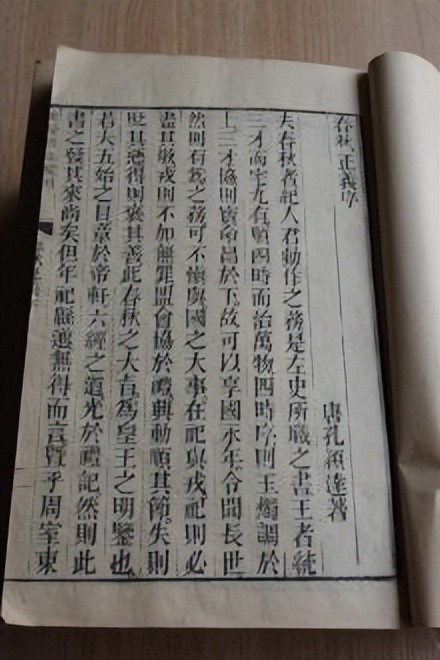 春秋正義序
唐孔穎達著
夫春秋者紀人君動作之務是左史所職之書王者統
三才而宅九有順四時而治萬物四時序則玉燭調於
上三才協則寶命昌於下故可以享國永年令聞長世
然則有爲之務可不愼與國之大事在祀與戎祀則必
盡其敬戎則不加無罪盟會協於禮興動順其節失則
貶其惡得則褒其善此春秋之大旨爲皇王之明鑒也
若夫五始之目章於帝軒六經之道光於禮記然則此
書之發其來尚矣但年祀緜邈無得而言曁乎周室東